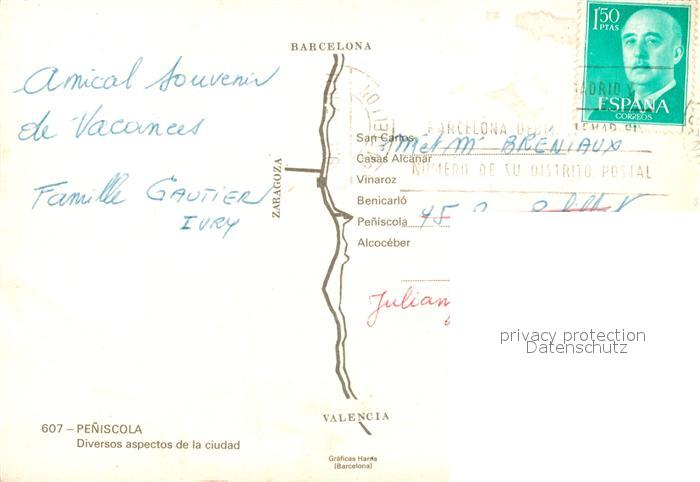 BARCELONA
Amical Souvenir
de Vacances
Famille GAUTIER
IVRY
ZARAGOZA
San Carlos
Casas Alcanar
Vinaroz
Benicarló
Peñiscola
Alcocéber
VALENCIA
607 – PEÑISCOLA
Diversos aspectos de la ciudad
Gráficas Harris
(Barcelona)
1'50
PTAS
ESPAÑA
CORREOS
MADRID Y
BARCELONA
NUMERO DE SU DISTRITO POSTAL
M et Me BRENIAUX
45
privacy protection
Datenschutz